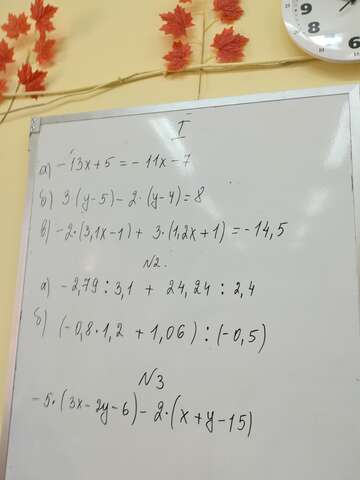 I
а) -13x+5=-11x-7
б) 3·(y-5)-2·(y-4)=8
в) -2·(3,1x-1)+3·(1,2x+1)=-14,5
N2.
а) -2,79:3,1+24,24:2,4
б) (-0,8·1,2+1,06):(-0,5)
N3
-5·(3x-2y-6)-2·(x+y-15)